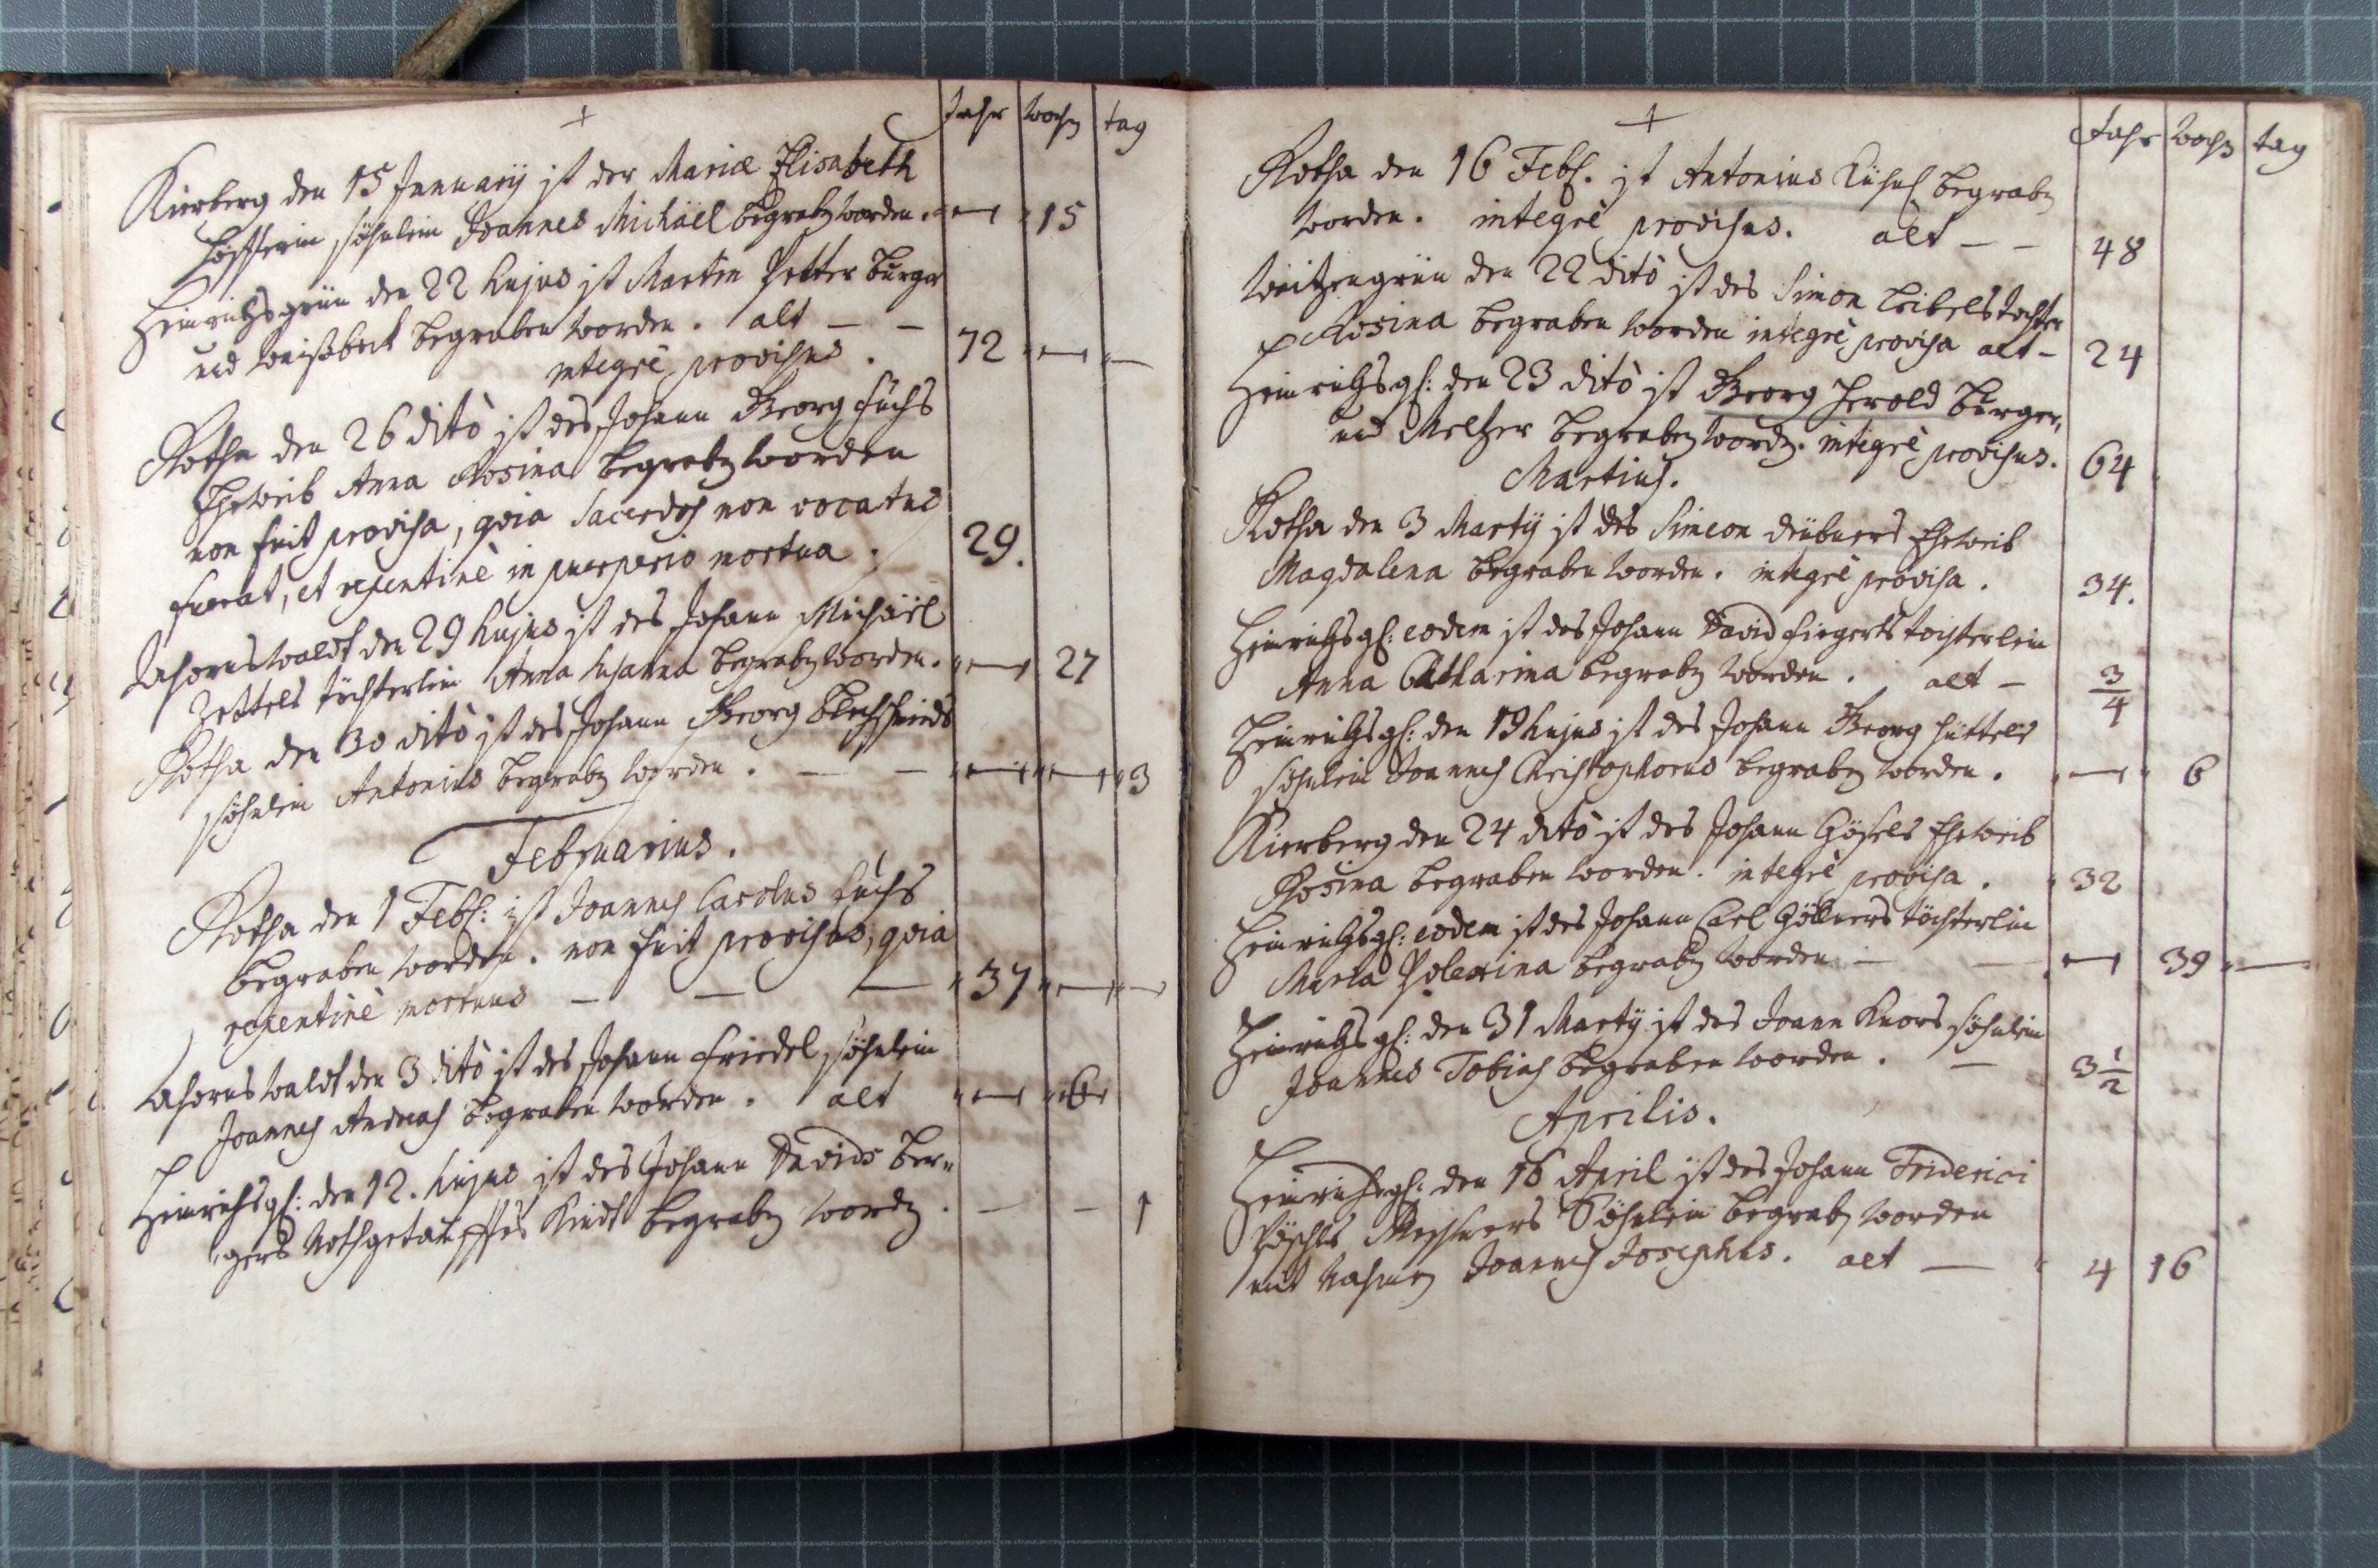 +
Jahr woch tag
Kierberg den 15 January ist der Mariæ Elisabeth
söhnlein Joannes Michäel begrab worden. 15
Heinrichsgrün den 22 hujus ist Martin Petter burger
und Weißbeck begraben worden. alt — — 72
integrè provisus.
Rotha den 26 ditò ist des Johann Georg Fuchs
Eheweib Anna Rosina begrab worden
non fuit provisa, qvia Sacerdos non vocatus
fuerat, et repentinè in puerperio mortua. 29.
Ahornswaldt den 29 hujus ist des Johann Michäel
Zettels töchterlein Anna Susanna begrab worden. 27
Rotha den 30 ditò ist des Johann Georg
söhnlein Antonius begrab worden. — — 3
Februarius.
Rotha den 1 Febr: ist Joannes Carolus Fuchs
begraben worden. non fuit provisus, qvia
repentinè mortuus — — — 37
Ahornswaldt den 3 ditò ist des Johann Friedel söhnlein
Joannes Andreas begraben worden. alt 6
Heinrichsgr: den 12. hujus ist des Johann Davids Ber-
gers Nothgetaufftes Kindt begrab word. — — 1
+
Jahr woch tag
Rotha den 16 Febr. ist Antonius begrab
worden. integrè provisus. alt — — 48
den 22 ditò ist des Simon Leibels tochter
Rosina begraben worden integrè provisa alt — 24
Heinrichsgr: den 23 ditò ist Georg Herold burger,
und Meltzer begrab word. integrè provisus. 64
Martius.
Rotha den 3 Martÿ ist des Simeon Eheweib
Magdalena begraben worden. integrè provisa. 34.
Heinrichsgr: eodem ist des Johann David töchterlein
Anna Catharina begrab worden. alt — 3/4
Heinrichsgr: den 19 hujus ist des Johann Georg Hüttels
söhnlein Joannes Christophorus begrab worden. 6
Kierberg den 24 ditò ist des Johann Eheweib
Rosina begraben worden. integrè provisa. 32
Heinrichsgr: eodem ist des Johann Carl töchterlein
Maria Polexina begrab worden — — 39
Heinrichsgr: den 31 Martÿ ist des Joann Knors söhnlein
Joannes Tobias begraben worden. — 3 1/2
Aprilis.
Heinrichsgr: den 16 April ist des Johann Friderici
Söhnlein begrab worden
mit Nahmen Joannes Josephus. alt — 4 16